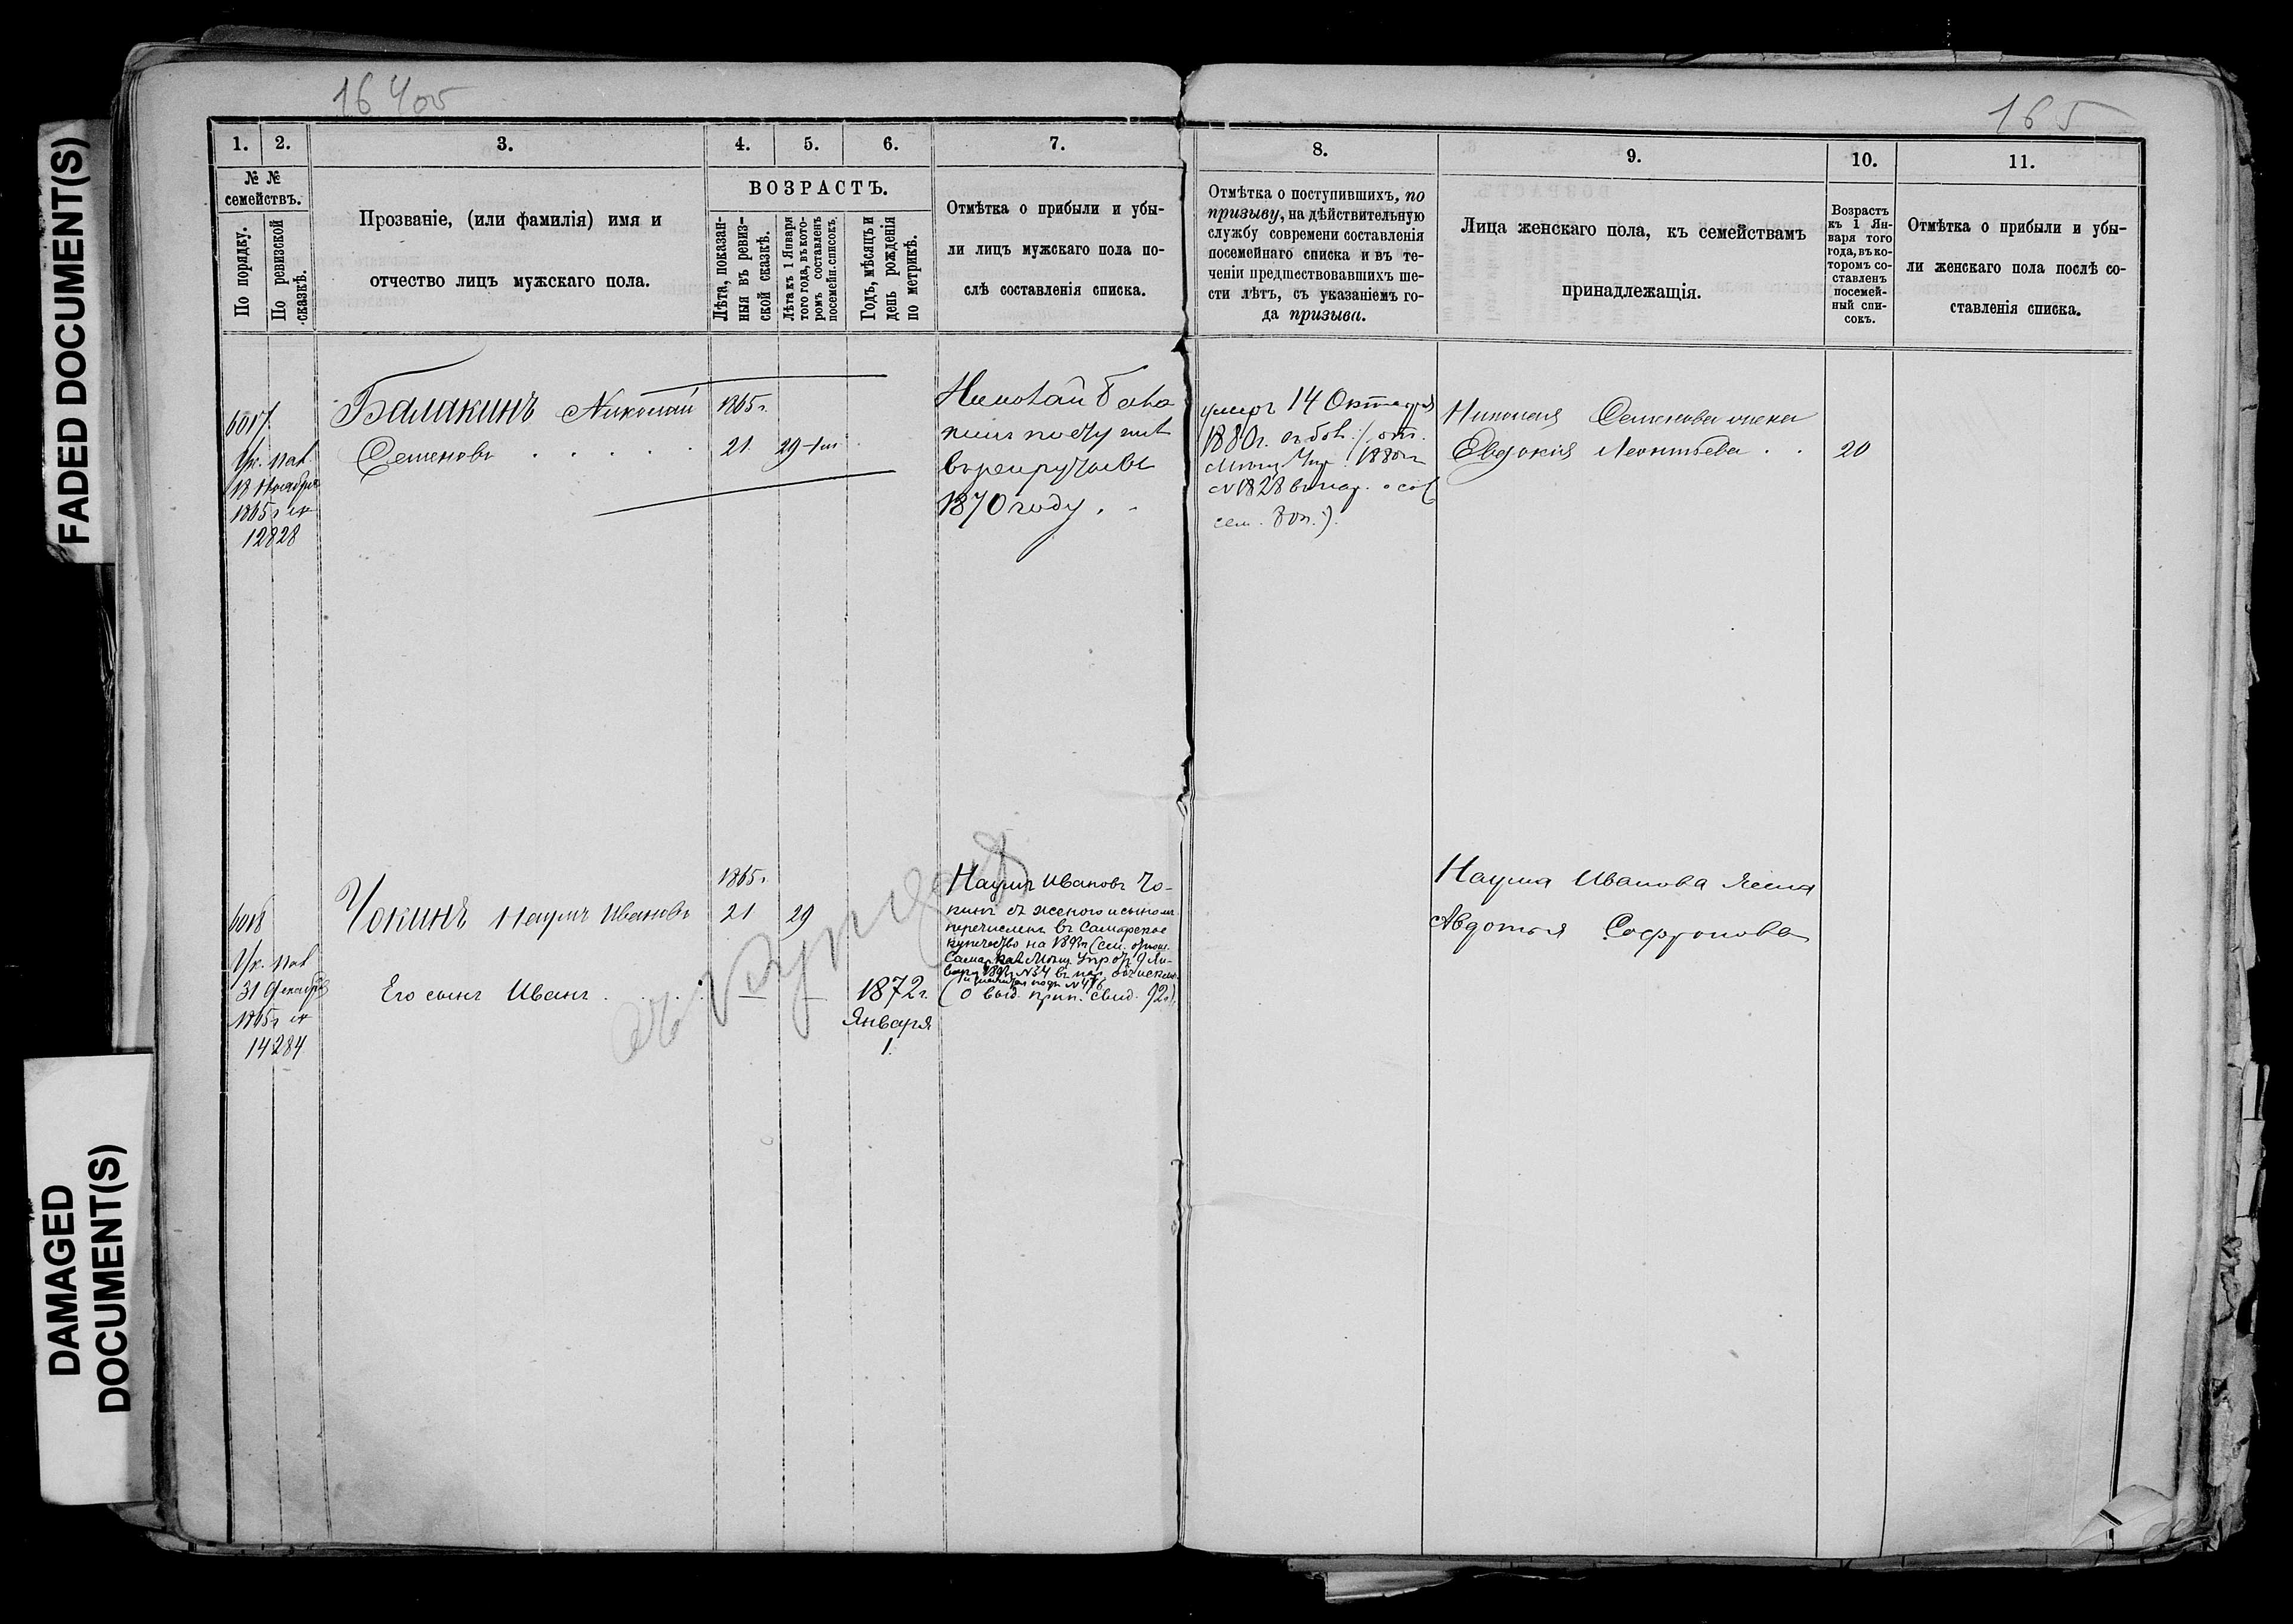 FADED DOCUMENT(S)
DAMAGED
DOCUMENT(S)
164об
165
1.
2.
3.
4.
5.
6.
7.
8.
9.
10.
11.
№ №
семействъ.
По порядку.
По ревизской
сказкѣ.
Прозваніе, (или фамилія) имя и
отчество лицъ мужскаго пола.
ВОЗРАСТЪ.
Лѣта, показан-
ныя въ ревиз-
ской сказкѣ.
Лѣта къ 1 Января
того года, въ кото-
ромъ составленъ
посемейн. списокъ.
Годъ, мѣсяцъ и
день рожденія
по метрикѣ.
Отмѣтка о прибыли и убы-
ли лицъ мужскаго пола по-
слѣ составленія списка.
Отмѣтка о поступившихъ, по
призыву, на дѣйствительную
службу современи составленія
посемейнаго списка и въ те-
ченіи предшествовавшихъ ше-
сти лѣтъ, съ указаніемъ го-
да призыва.
Лица женскаго пола, къ семействамъ
принадлежащія.
Возрастъ
къ 1 Ян-
варя того
года, въ ко-
торомъ со-
ставленъ
посемей-
ный спи-
сокъ.
Отмѣтка о прибыли и убы-
ли женскаго пола послѣ со-
ставленія списка.
6017
Ук. пал.
18 Ноября
1865 г №
12828
Балакинъ Николай
Семеновъ
1865 г.
21
29
Николай Бала
кинъ поступилъ
въ рекруты въ
1870 году.
умеръ 14 Октября
1880 г.
1880 г
№ 1828
Николая Семенова жена
Евдокія Леонтьева
20
6018
Ук. пал
31 Декабря
1865 г №
14284
Чокинъ Наумъ Ивановъ
1865 г.
21
29
Его сынъ Иванъ
1872 г.
Января
1.
Наумъ Ивановъ Чо-
кинъ съ женою и сыномъ
перечисленъ въ Самарское
купечество на 189
№ 34
Наума Иванова жена
Авдотья Софронова